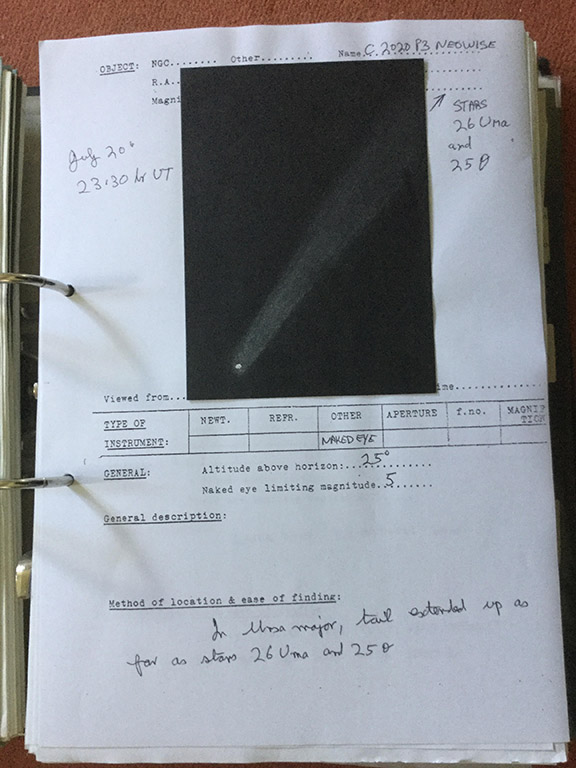 OBJECT: NGC........ Other......... Name. C. 2020 P3 NEOWISE
R.A..
Magni
STARS
26 Uma
and
25 θ
July 20th
23.30 hr UT
Viewed from... ime......
TYPE OF INSTRUMENT: NEWT. REFR. OTHER APERTURE f.no. MAGNIF TION
NAKED EYE
GENERAL: Altitude above horizon:...25°.......
Naked eye limiting magnitude..5......
General description:
Method of location & ease of finding:
In Ursa major, tail extended up as
far as stars 26 Uma and 25 θ